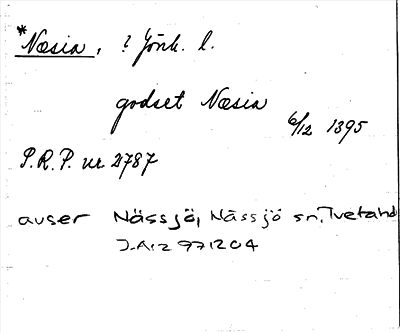 *Næsia, ? Jönk. l.
godset Næsia 6/12 1395
S.R.P. nr 2787
avser Nässjö, Nässjö sn, Tveta hd
J.A:z 971204